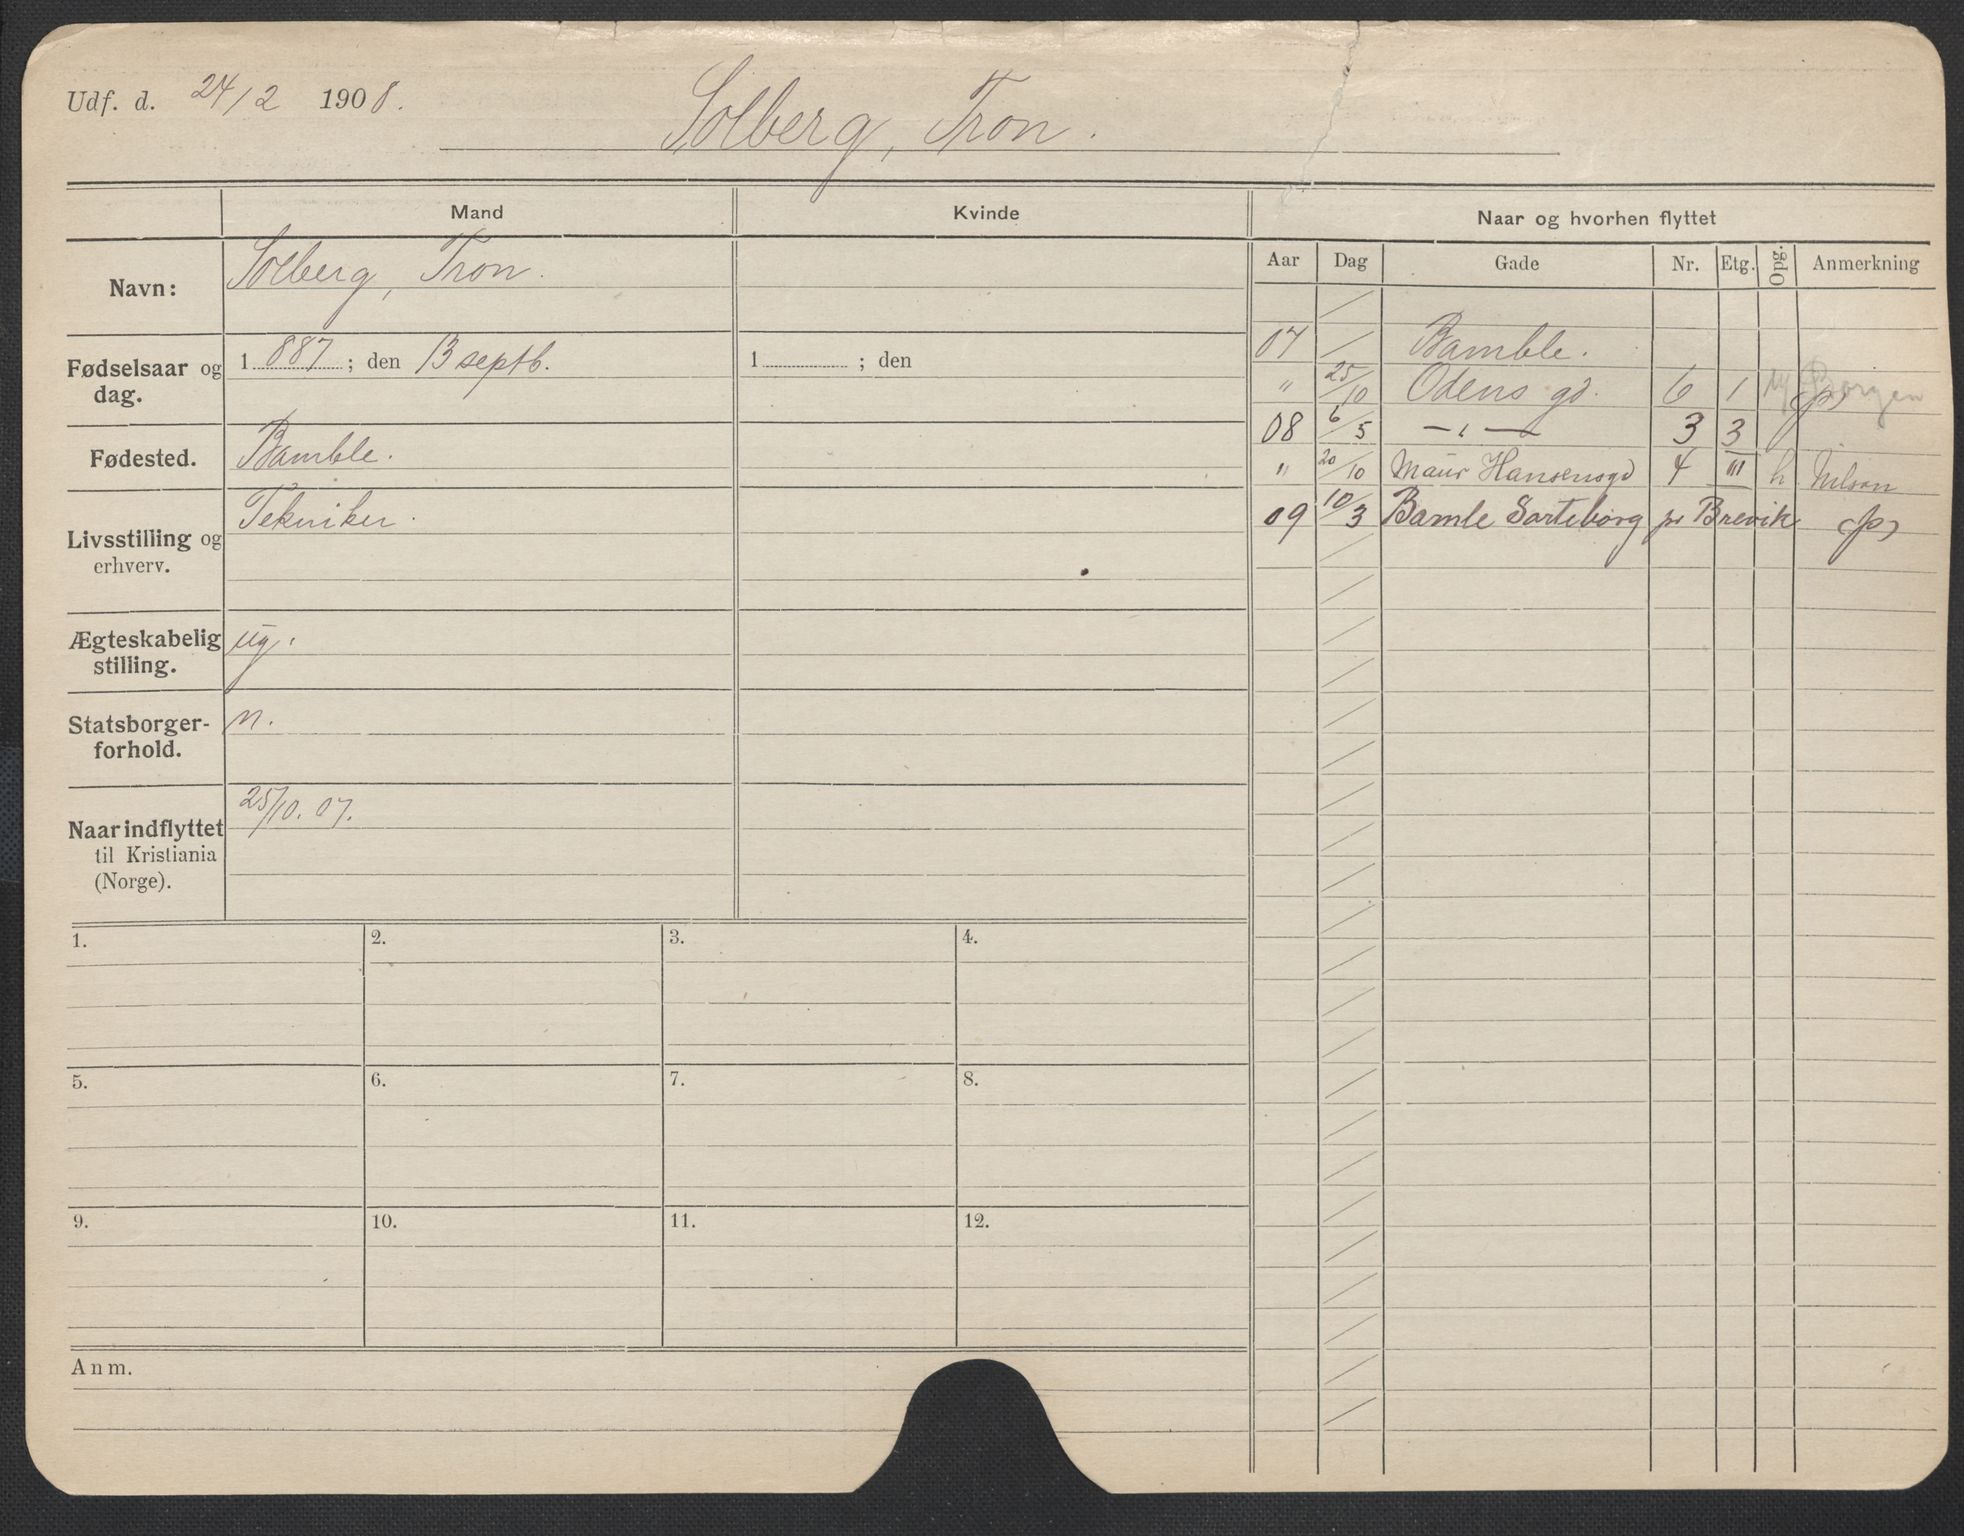 Udf. d. 24/2 1908.
Solberg, Tron.
Mand
Kvinde
Navn:
Solberg, Tron.
Fødselsaar og dag.
1887; den 13 septb.
1 ; den
Fødested.
Bamble.
Livsstilling og erhverv.
Tekniker.
Ægteskabelig stilling.
ug.
Statsborger-
forhold.
n.
Naar indflyttet
til Kristiania
(Norge).
25/10. 07.
1. 2. 3. 4.
5. 6. 7. 8.
9. 10. 11. 12.
Anm.
Naar og hvorhen flyttet
Aar Dag Gade Nr. Etg. Opg. Anmerkning
07 / Bamble.
" 25/10 Odens gd. 6 1 Borgen (p)
08 6/5 —"— 3 3
" 20/10 Maur Hansensgd 4 III h Nilsen
09 10/3 Bamle Sarteborg pr Brevik (p)